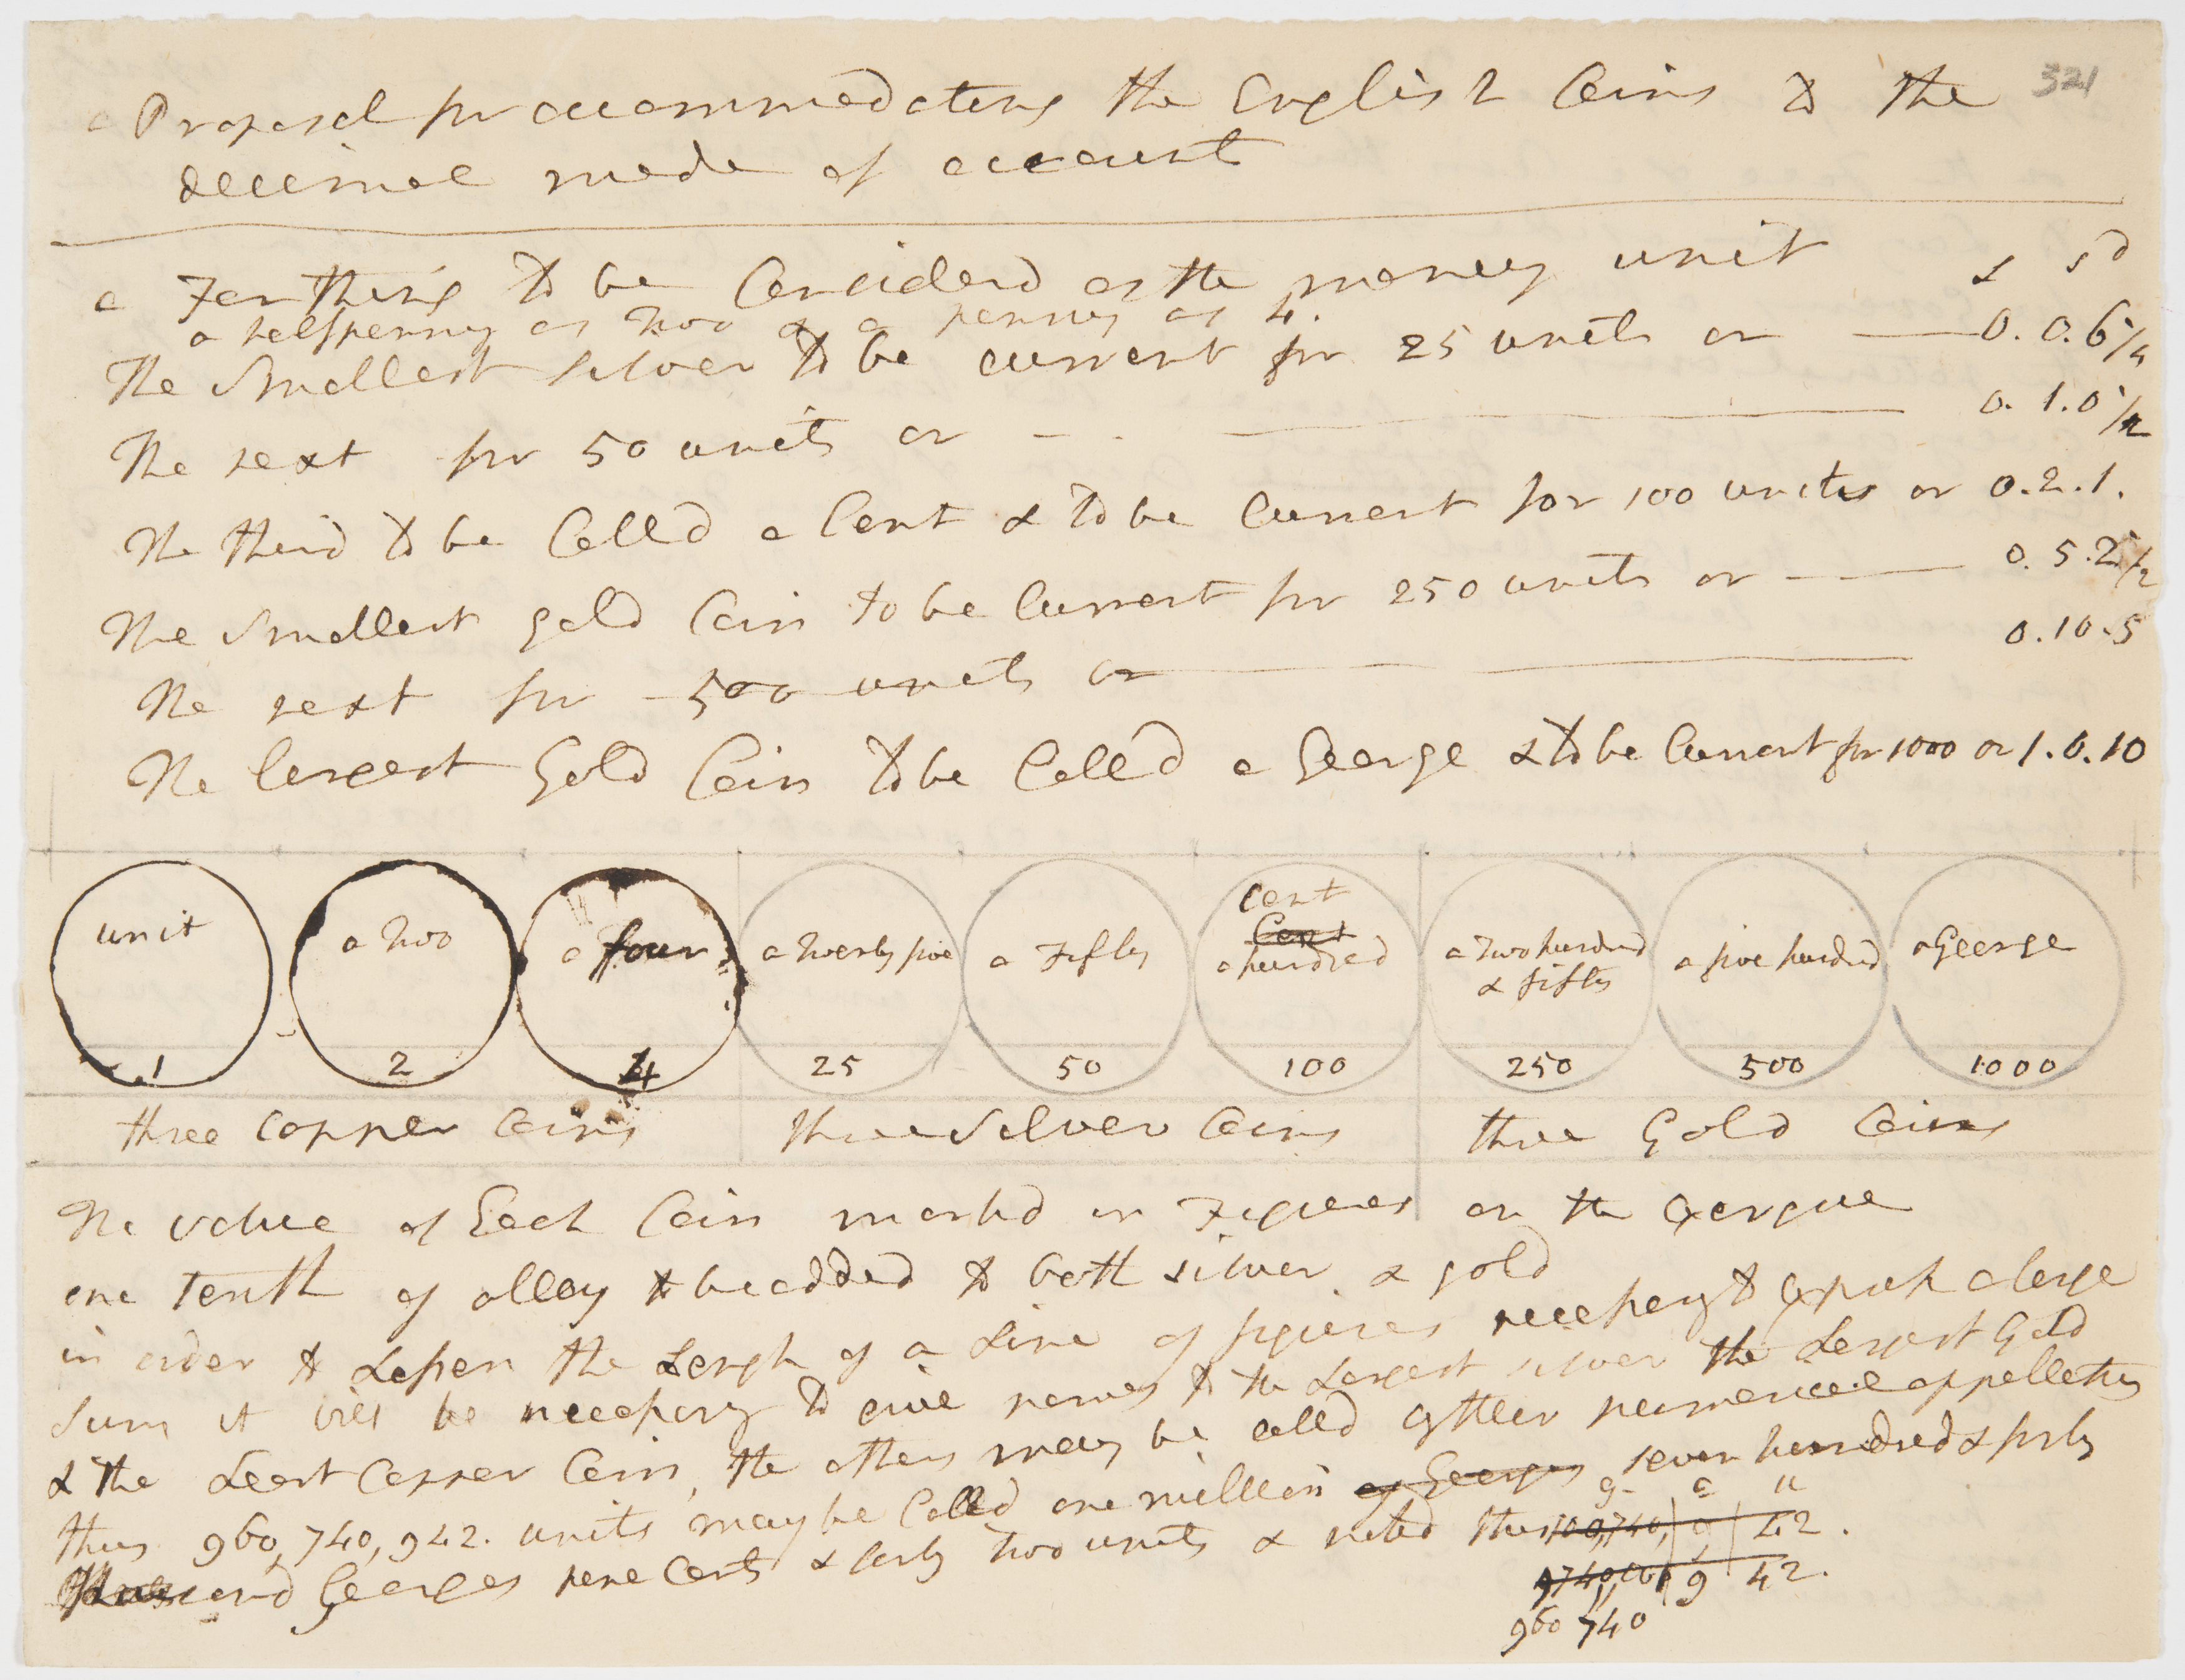 321
a Proposal for accommodating the English Coins to the
decimal mode of account
£ s d
a Farthing to be Considerd as the money unit
a halfpenny as two & a penny as 4.
The Smallest silver to be current for 25 units or — 0.0.6 1/4
The next for 50 units or — 0.1.0 1/2
The third to be Calld a Cent & to be Current for 100 units or 0.2.1.
The Smallest gold Coin to be Current for 250 units or — 0.5.2 1/2
The next for 500 units or — 0.10.5
The largest Gold Coin to be Calld a George & to be Current for 1000 or 1.0.10
unit a two a four a twenty five a Fifty Cent Cent a hundred a Two hundred & fifty a five hundred a George
1 2 4 25 50 100 250 500 1000
three Copper Coins three Silver Coins three Gold Coins
The value of Each Coin markd in Figures on the Exergue
one tenth of alloy to be added to both silver & gold
in order to Lessen the Length of a Line of figures necessary to Express a large
Sum it will be necessary to give names to the Largest silver the Largest Gold
& the Least Copper Coin, the others may be calld by their numerical appellations
thus 960,740,942. units may be Calld one million of Georges seven hundred & forty
g c u
Thousand Georges nine Cents & forty two units & noted thus 9 42.
9 42.
960 740